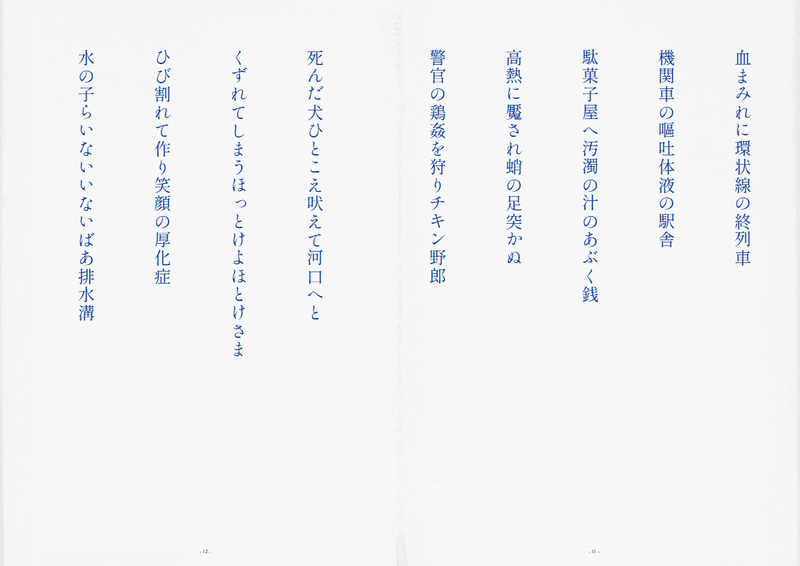 血まみれに環状線の終列車
機関車の嘔吐体液の駅舎
駄菓子屋へ汚濁の汁のあぶく銭
高熱に魘され蛸の足突かぬ
警官の鶏姦を狩りチキン野郎
- 11 -
死んだ犬ひとこえ吠えて河口へと
くずれてしまうほっとけよほとけさま
ひび割れて作り笑顔の厚化症
水の子らいないいないばあ排水溝
- 12 -